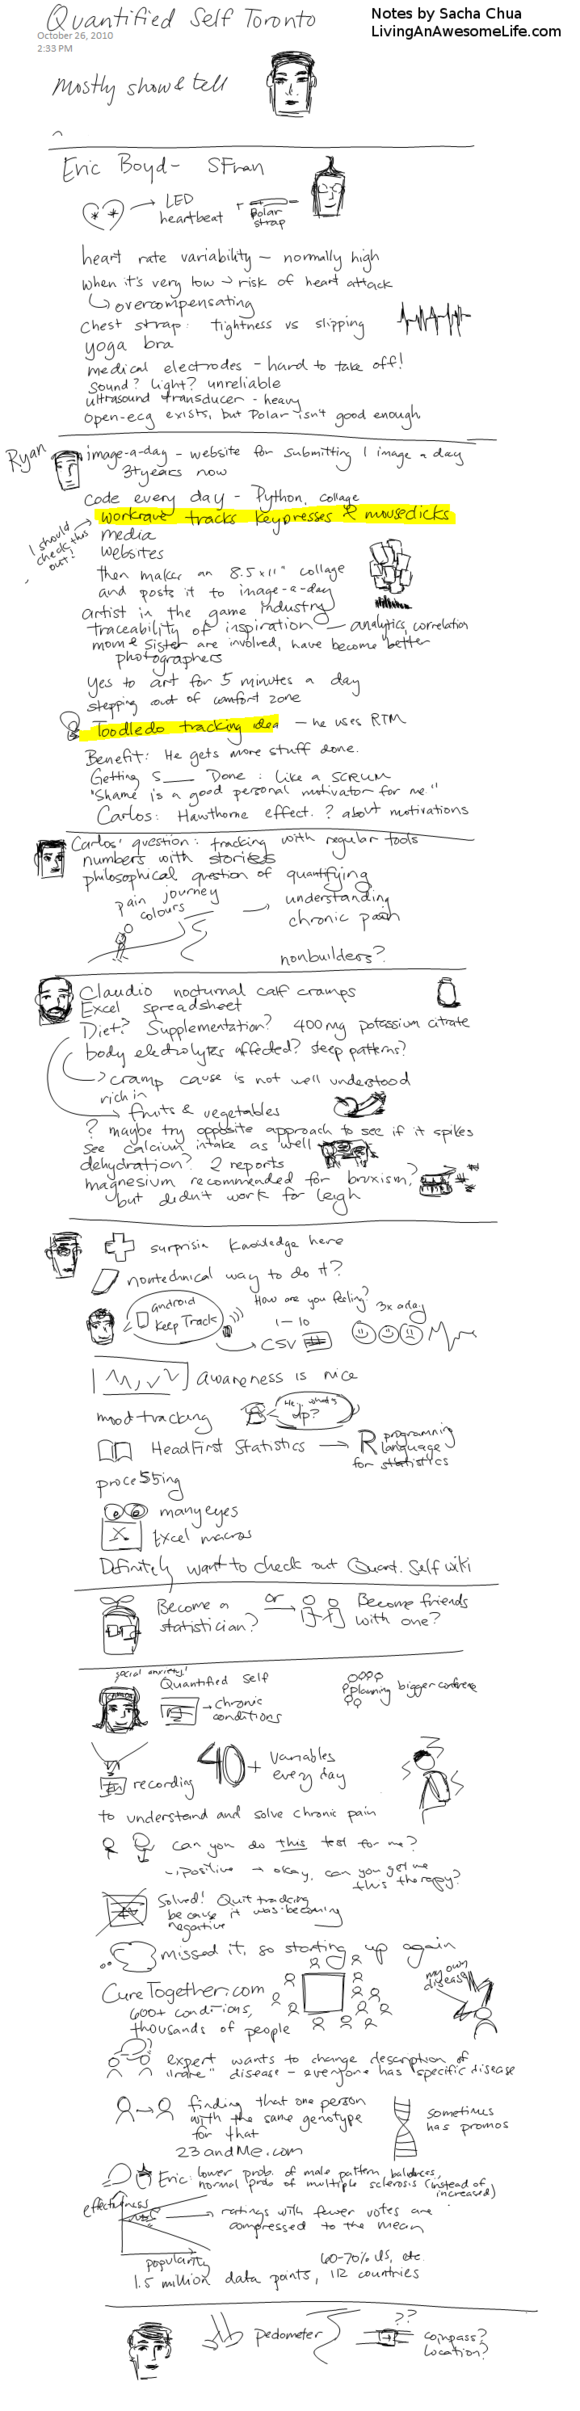 Quantified Self Toronto
October 26, 2010
2:33 PM
Notes by Sacha Chua
LivingAnAwesomeLife.com
Mostly show & tell
Eric Boyd - SFran
LED
heartbeat
+
Polar
strap
heart rate variability - normally high
when it's very low → risk of heart attack
overcompensating
chest strap: tightness vs slipping
yoga bra
medical electrodes - hard to take off!
Sound? Light? unreliable
ultrasound transducer - heavy
open-ecg exists, but Polar isn't good enough
Ryan
image-a-day - website for submitting 1 image a day
3+ years now
Code every day - Python, collage
workrave tracks keypresses & mouseclicks
I should
check this
out!
media
websites
then makes an 8.5 x 11" collage
and posts it to image-a-day
artist in the game industry
traceability of inspiration - analytics, correlation
mom & sister are involved, have become better
photographers
Yes to art for 5 minutes a day
stepping out of comfort zone
Toodledo tracking idea - he uses RTM
Benefit: He gets more stuff done.
Getting S___ Done: like a SCRUM
"Shame is a good personal motivator for me."
Carlos: Hawthorne effect. ? about motivations
Carlos' question: tracking with regular tools
numbers with stories
philosophical question of quantifying
pain journey
colours
understanding
chronic pain
nonbuilders?
Claudio nocturnal calf cramps
Excel spreadsheet
Diet? Supplementation? 400mg potassium citrate
body electrolytes affected? sleep patterns?
cramp cause is not well understood
rich in
fruits & vegetables
? maybe try opposite approach to see if it spikes
see calcium intake as well
dehydration? 2 reports
magnesium recommended for bruxism,?
but didn't work for Leigh
knowledge here
nontechnical way to do it?
android
Keep Track
How are you feeling?
1-10
3x a day
CSV
awareness is nice
mood tracking
up?
HeadFirst Statistics → R programming
language
for statistics
processing
manyeyes
X
Excel macros
Definitely want to check out Quant. Self wiki
Become a
statistician?
or
Become friends
with one?
social anxiety!
Quantified Self
→ chronic
conditions
planning bigger conference
recording
40+ variables
every day
to understand and solve chronic pain
can you do this test for me?
→ positive → okay, can you get me
this therapy?
Solved! Quit tracking
because it was becoming
negative
missed it, so starting up again
CureTogether.com
600+ conditions,
thousands of people
my own
disease
expert wants to change description of
"rare" disease - everyone has specific disease
finding that one person
with the same genotype
for that
23andMe.com
sometimes
has promos
Eric: lower prob. of male pattern baldness,
normal prob of multiple sclerosis (instead of
increased)
effectiveness
ratings with fewer votes are
compressed to the mean
popularity
60-70% US, etc.
1.5 million data points, 112 countries
pedometer
??
compass?
location?